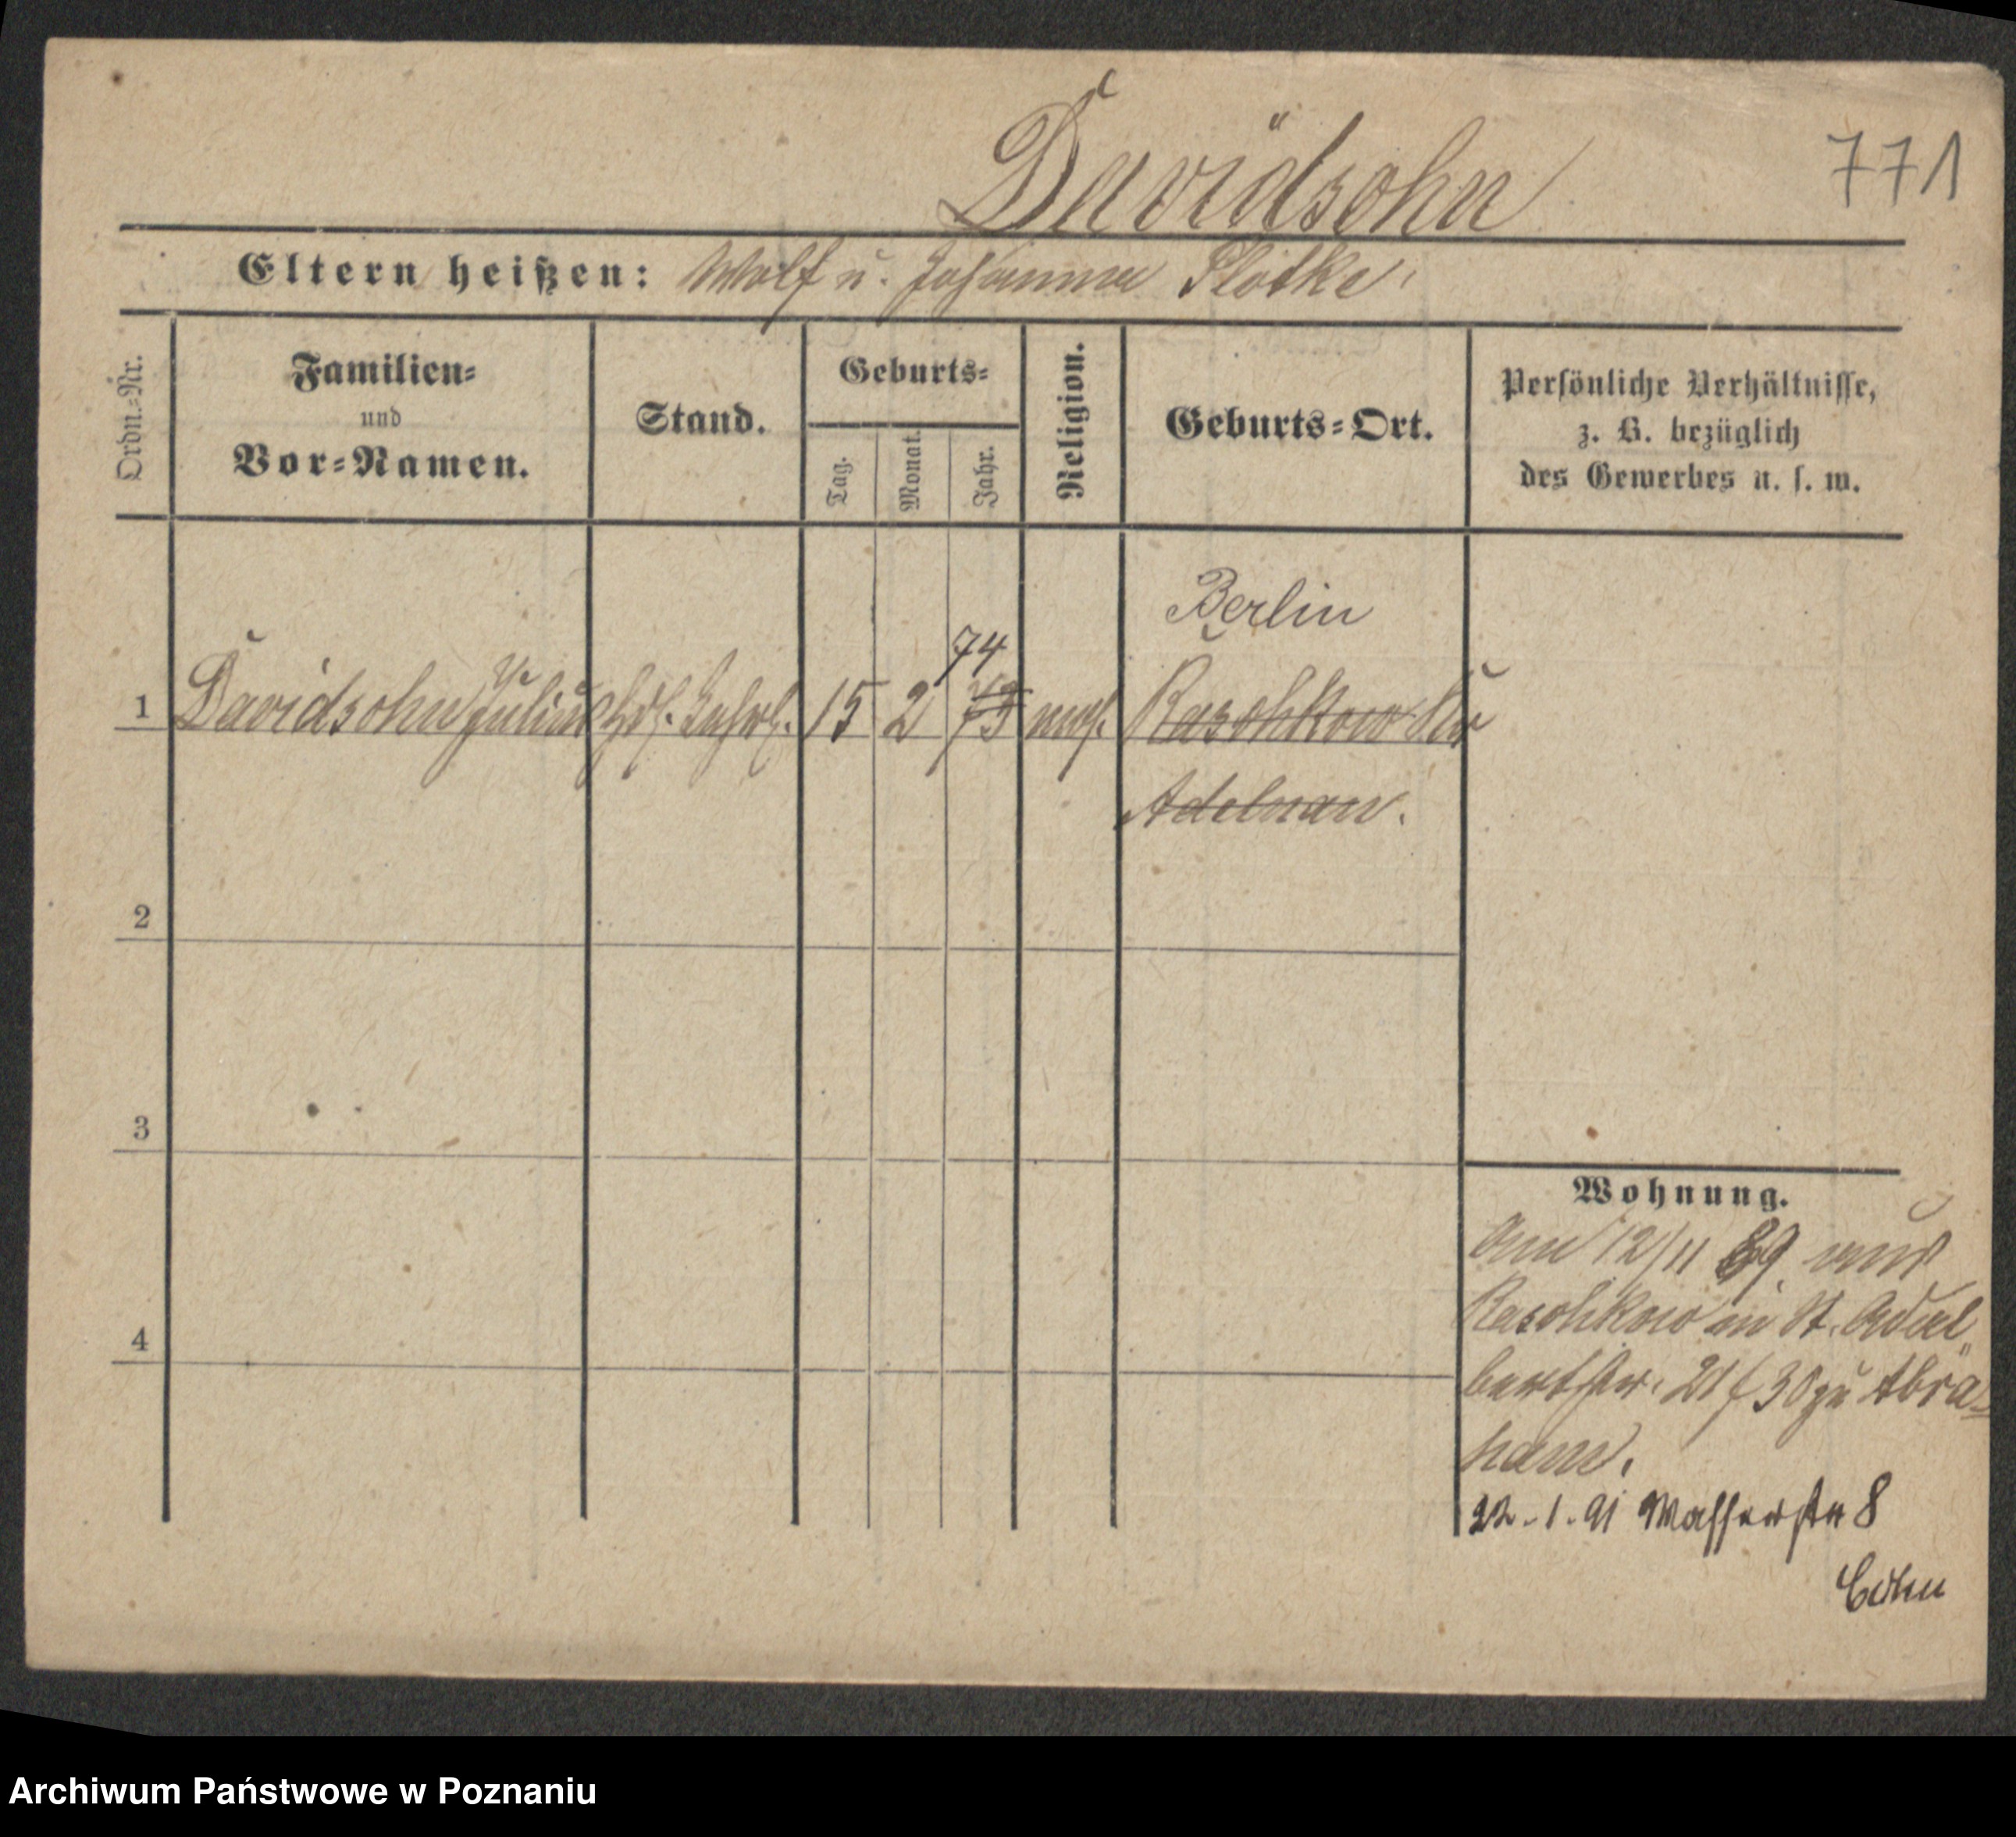 Davidsohn
771
Eltern heißen: Wolf u. Johanna Plotke.
Ordn.-Nr.
Familien-
und
Vor-Namen.
Stand.
Geburts-
Tag.
Monat.
Jahr.
Religion.
Geburts-Ort.
Persönliche Verhältnisse,
z. B. bezüglich
des Gewerbes u. s. w.
Berlin
74
1 Davidsohn Julius Hdl. Lehrl. 15 2 73 mos. Raschkow Kr
Adelnau.
2
3
4
Wohnung.
Am 12/11 89 aus
Raschkow in St. Adal-
bertstr. 29/30 zu Abra-
ham.
22.1.91 Wasserstr 8
Cohn
Archiwum Państwowe w Poznaniu